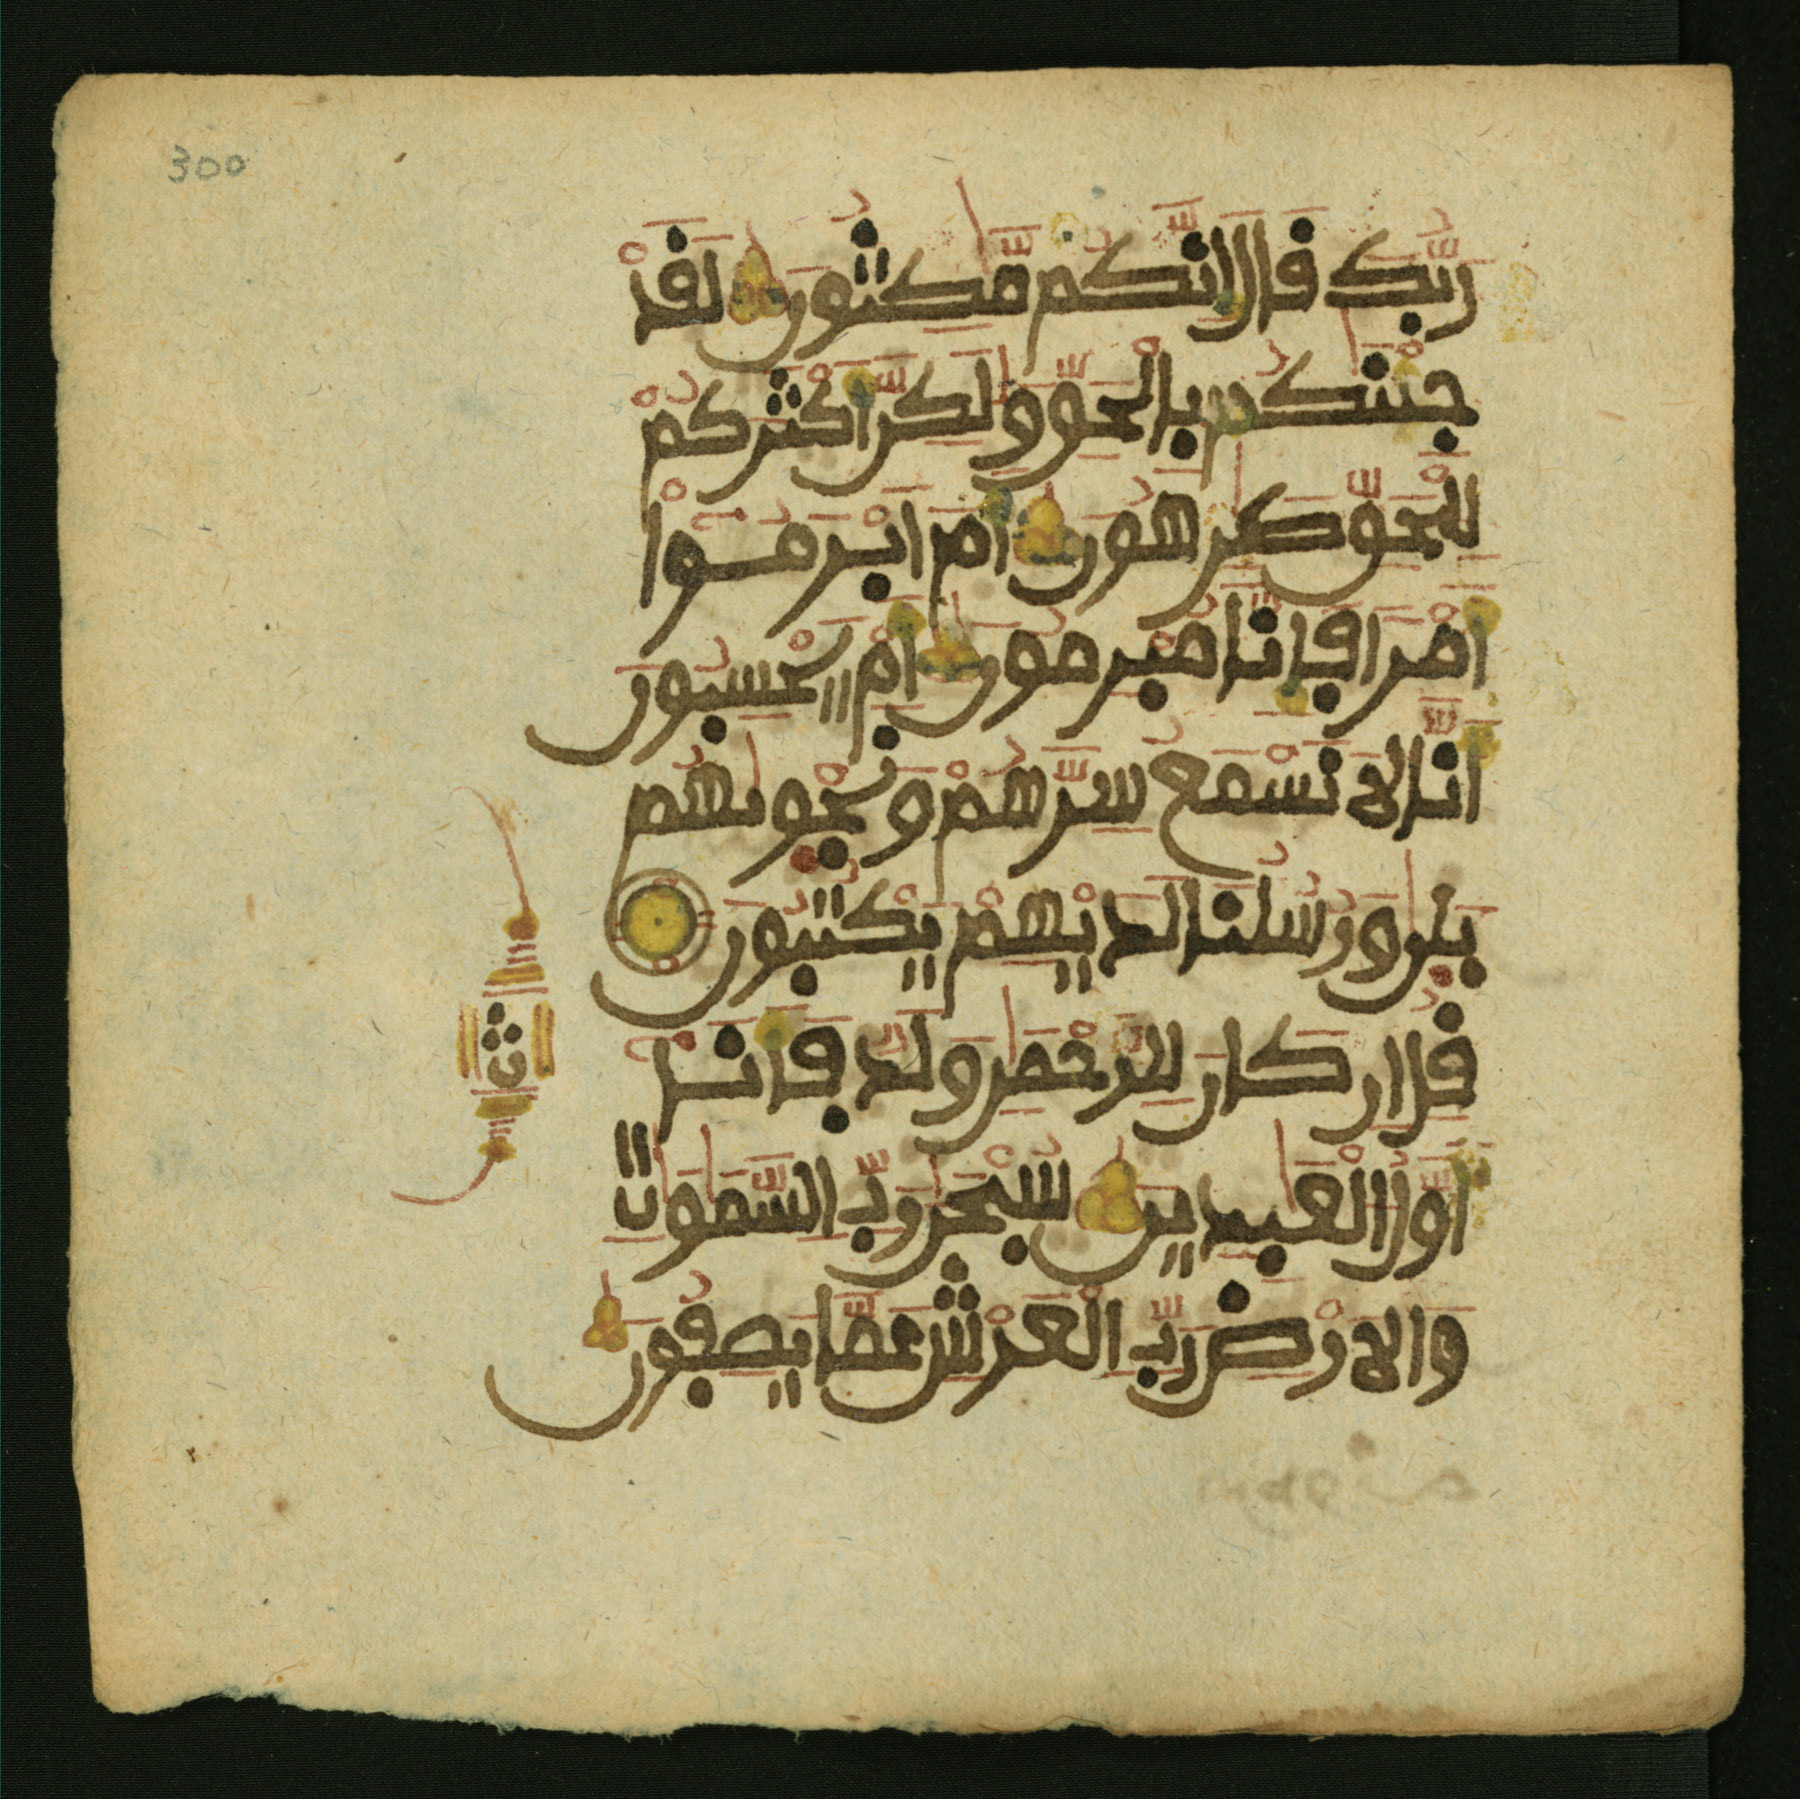 300
رَبُّكَ قَالَ إِنَّكُم مَّـٰكِثُونَ لَقَدْ
جِئْنَـٰكُم بِالْحَقِّ وَلَـٰكِنَّ أَكْثَرَكُمْ
لِلْحَقِّ كَـٰرِهُونَ أَمْ أَبْرَمُوٓا
أَمْرًا فَإِنَّا مُبْرِمُونَ أَمْ يَحْسِبُونَ
أَنَّا لَا نَسْمَعُ سِرَّهُمْ وَنَجْوَىٰهُم
بَلَىٰ وَرُسُلُنَا لَدَيْهِمْ يَكْتُبُونَ
قُلْ إِن كَانَ لِلرَّحْمَـٰنِ وَلَدٌ فَأَنَآ
ث
أَوَّلُ الْعَـٰبِدِينَ سُبْحَـٰنَ رَبِّ السَّمَـٰوَٰتِ
وَالْأَرْضِ رَبِّ الْعَرْشِ عَمَّا يَصِفُونَ